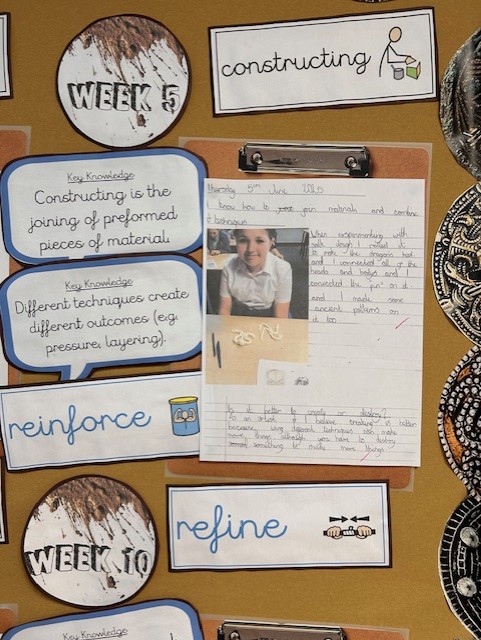 WEEK 5
constructing
Key Knowledge
Constructing is the
joining of preformed
pieces of material.
Key Knowledge
Different techniques create
different outcomes (e.g.
pressure, layering).
Thursday 5th June 2025
I know how to join materials and combine
techniques
When experimenting with
salt dough I rolled it
to make the dragons head
and I connected all of the
heads and bodys and I
connected the "fin" on it
and I made some
ancient patterns on
it too
Is it better to create or destroy?
As an artist I believe creating is better
because using different techniques can make
more things although you have to destroy
something to make more things
reinforce
WEEK 10
refine
Key Knowledge